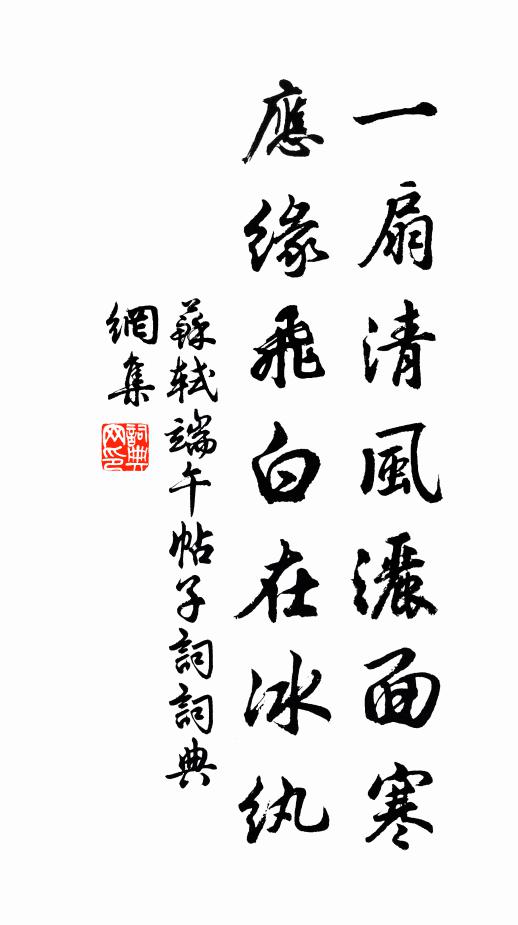 一扇清風灑面寒
應緣飛白在冰紈
蘇軾端午帖子詞詞典
網集
詞典
网印